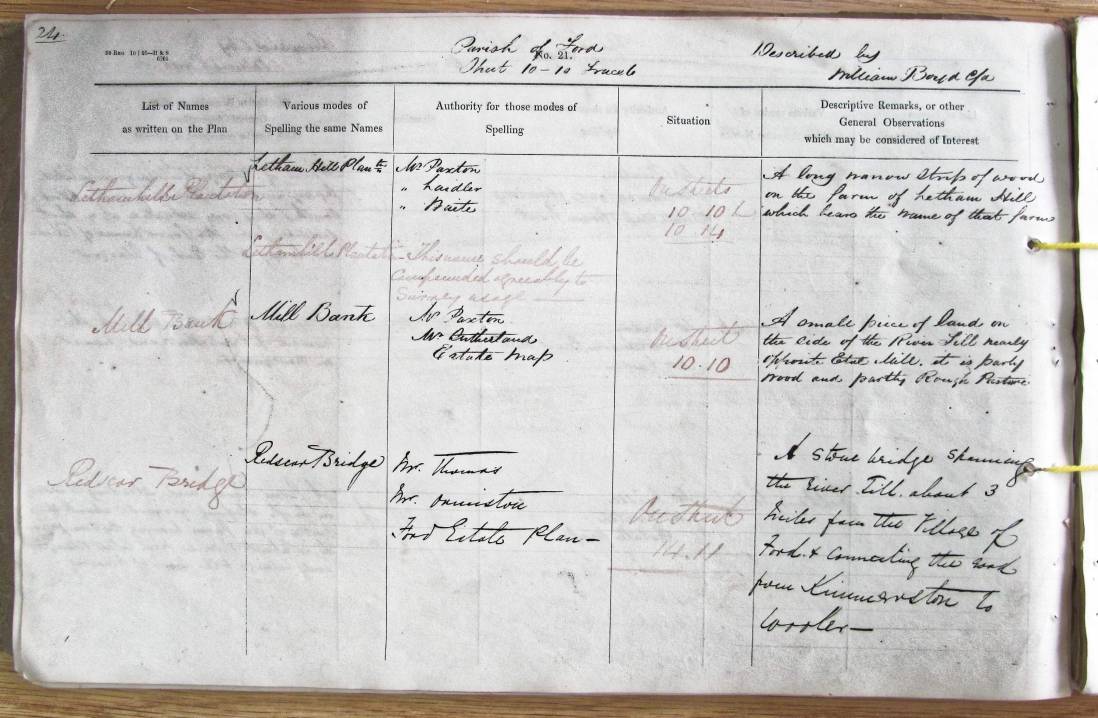 24.
Parish of Ford
No. 21.
Sheet 10-10 Trace 6
Described by
William Boyd C/A
List of Names
as written on the Plan
Various modes of
Spelling the same Names
Authority for those modes of
Spelling
Situation
Descriptive Remarks, or other
General Observations
which may be considered of Interest
Lethamhill Plantation
Letham Hill Plantn
Mr Paxton
" Laidler
" Baite
On Sheets
10 10 &
10 14
A long narrow strip of wood
on the farm of Letham Hill
which bears the name of that farm
Lethamhill Plantatn
This name should be
Compounded agreeably to
Survey usage
Mill Bank
Mill Bank
Mr Paxton
Mr Sutherland
Estate Map
On Sheet
10.10
A small piece of land on
the side of the River Till nearly
opposite Etal Mill. it is partly
wood and partly Rough Pasture
Redscar Bridge
Redscar Bridge
Mr. Thomas
Mr. Ormiston
Ford Estate Plan-
On Sheet
14.11
A stone bridge spanning
the river Till. about 3
miles from the Village of
Ford. & connecting the road
from Kimmerston to
Wooler-